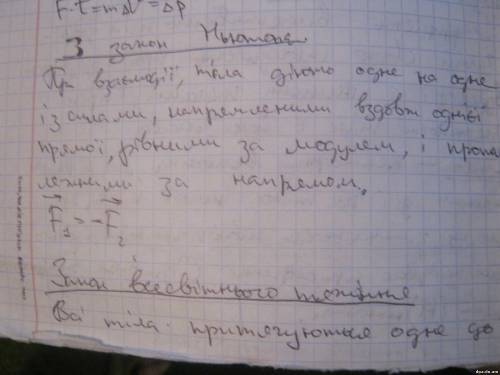 F·t=mΔV=Δp
3 закон Ньютона
При взаємодії, тіла діють одне на одне
із силами, напрямленими вздовж однієї
прямої, рівними за модулем, і проти
лежними за напрямом.
F₁=-F₂
Закон всесвітнього тяжіння
Всі тіла притягуються одне до